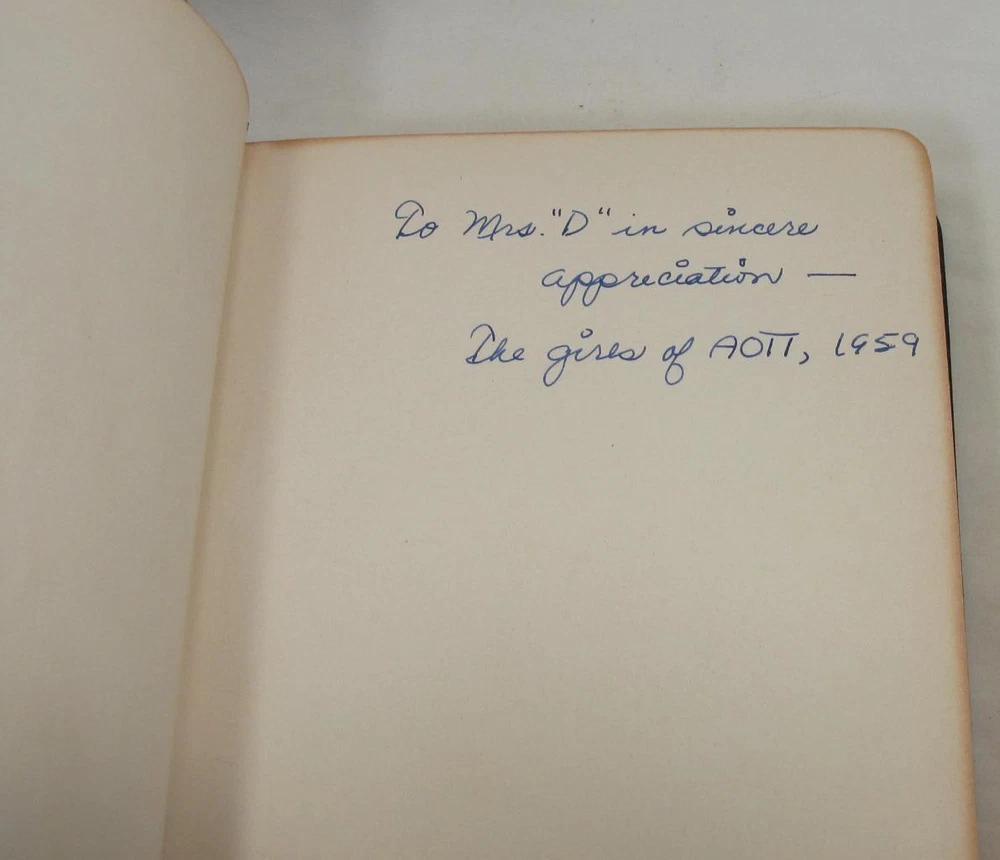 To Mrs. "D" in sincere
appreciation —
The girls of AOΠ, 1959